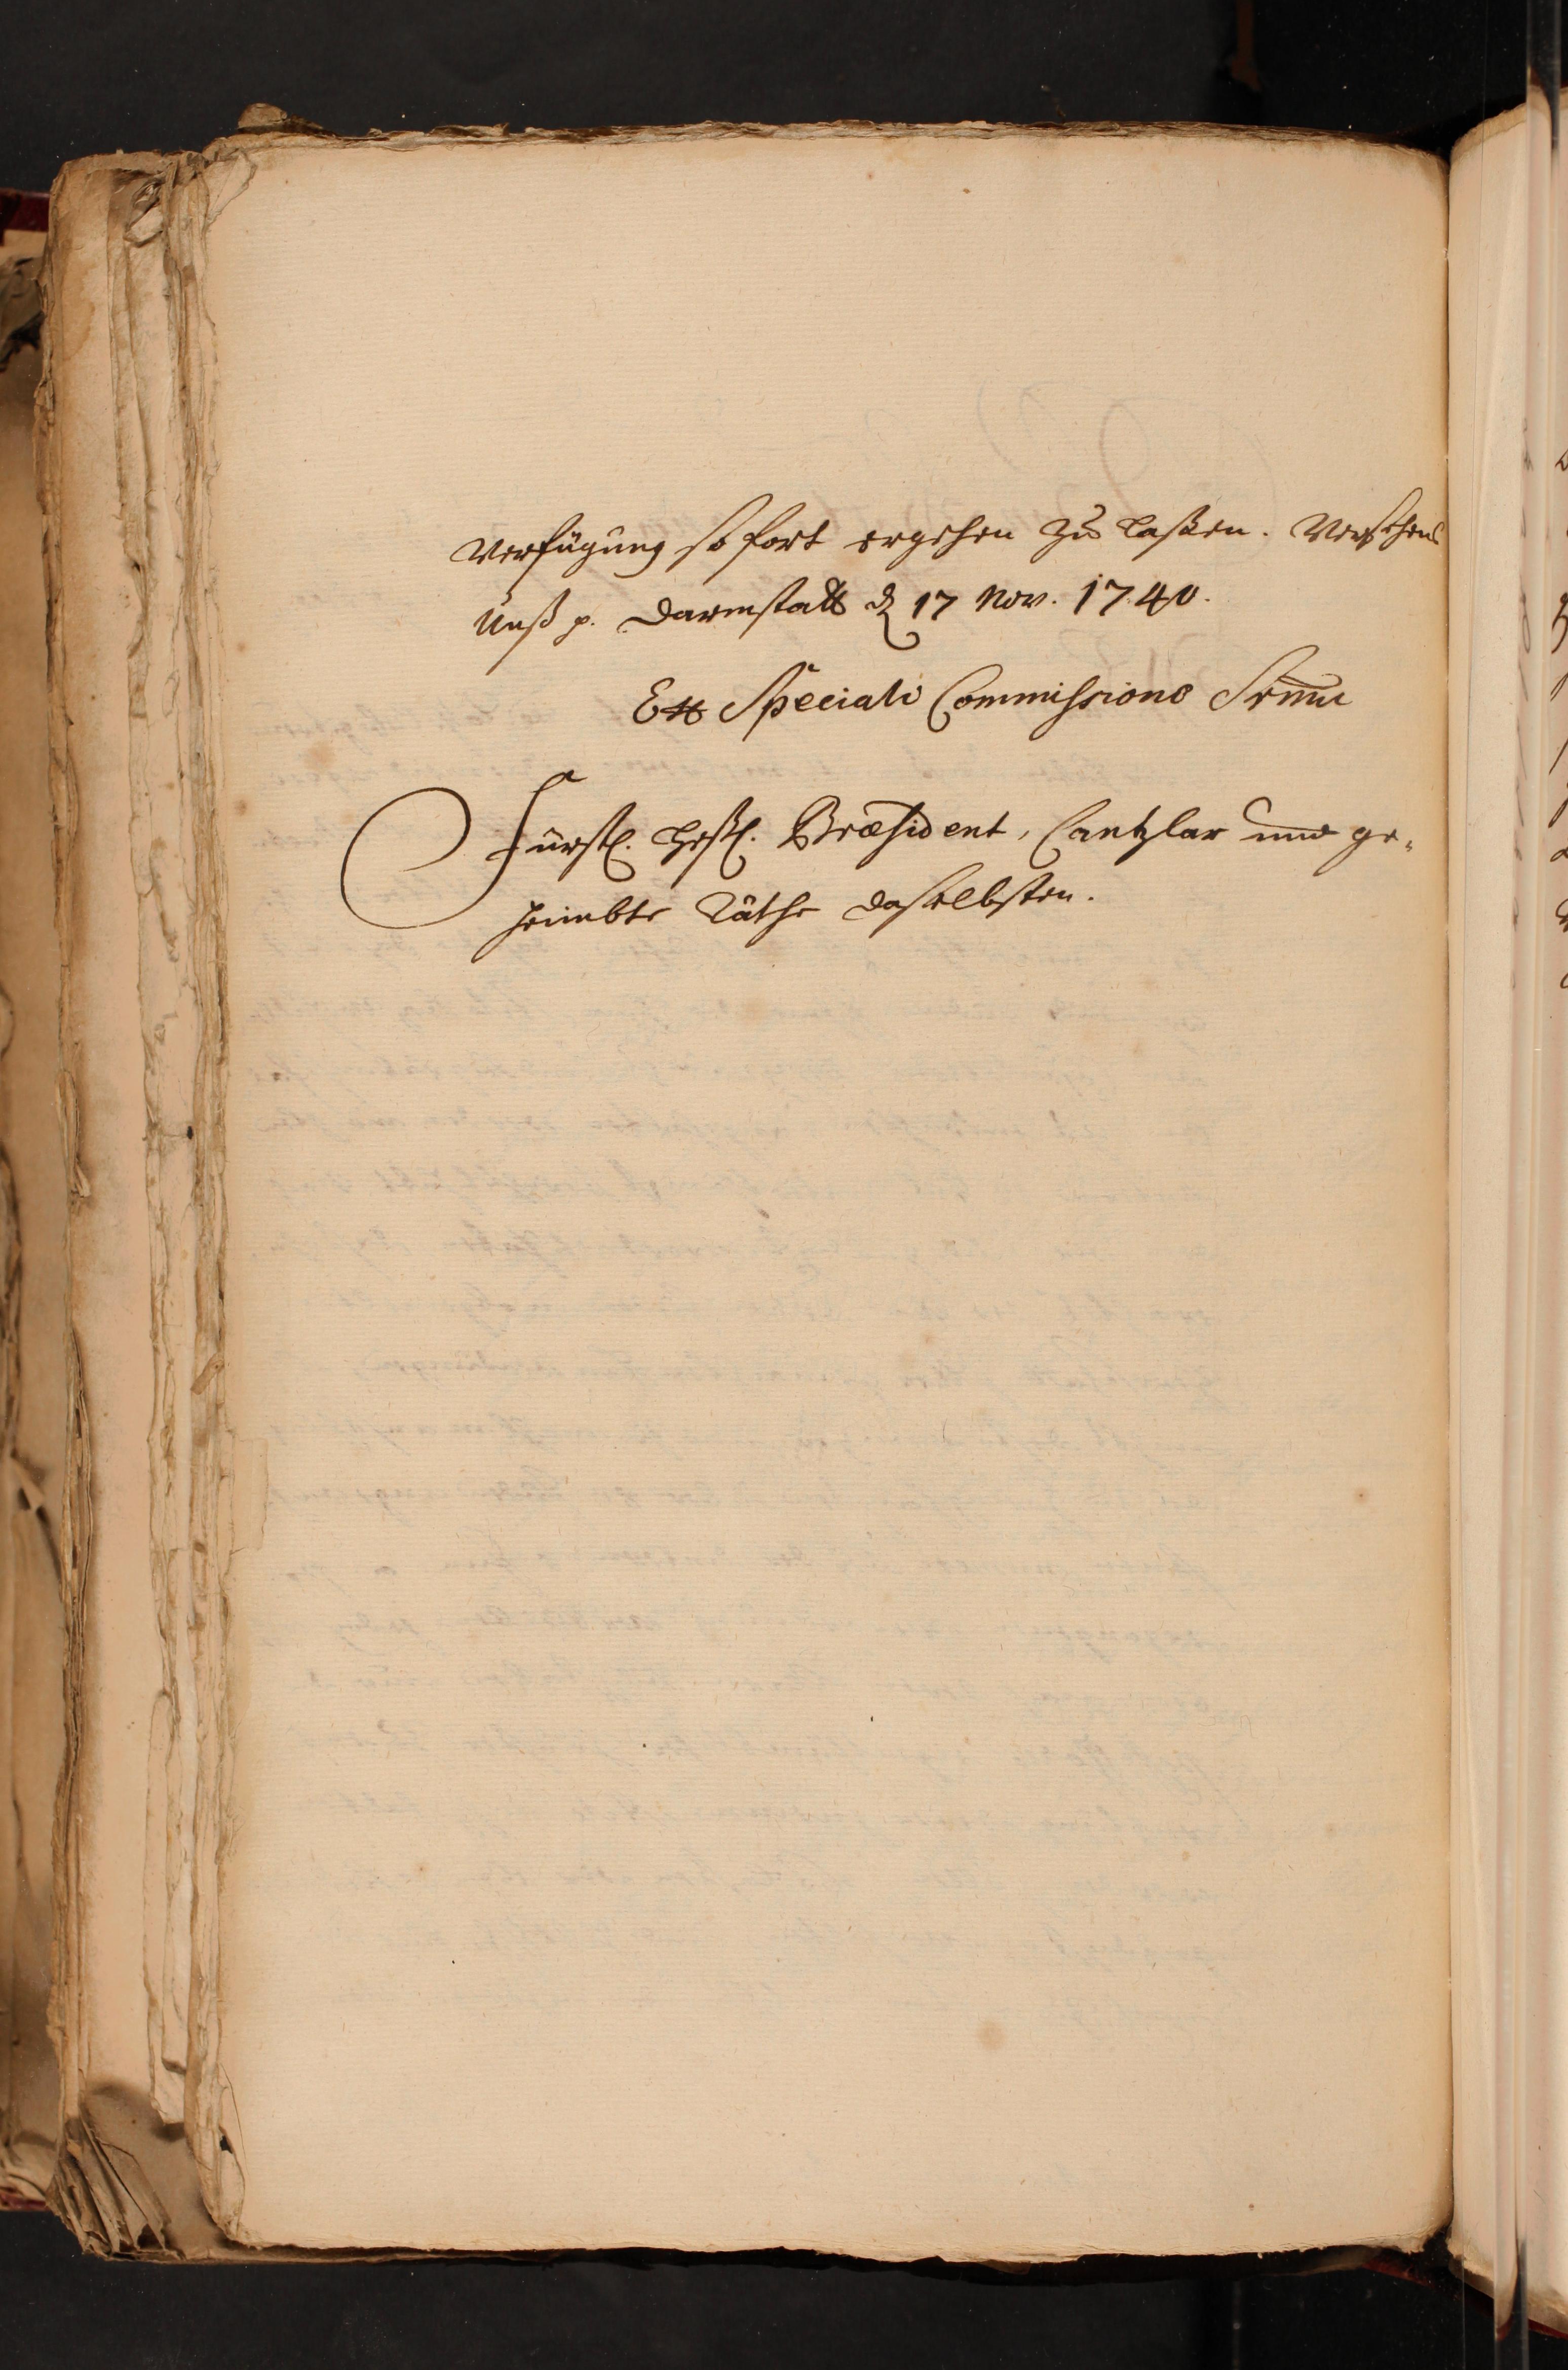 Verfügung so fort ergehen zu laßen. Versehens
Unß p. Darmstatt d 17 Nov. 1740.
Ex Speciali Commissione Smi
Fürstl. Heßl. Præsident, Cantzlar und ge-
heimbte Räthe daselbsten.